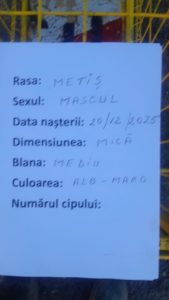 Rasa: METIȘ
Sexul: MASCUL
Data nașterii: 20/12/2025
Dimensiunea: MICĂ
Blana: MEDIU
Culoarea: ALB - MARO
Numărul cipului: